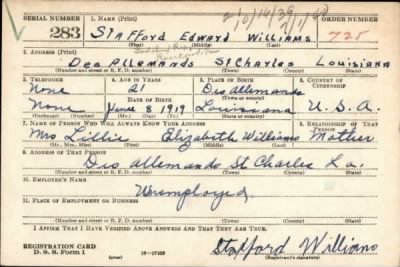 SERIAL NUMBER 1. NAME (Print) ORDER NUMBER
283 Stafford Edward Williams 725
(First) (Middle) (Last)
2. ADDRESS (Print)
Des Allemands St Charles Louisiana
(Number and street or R. F. D. number) (Town) (County) (State)
3. TELEPHONE 4. AGE IN YEARS 5. PLACE OF BIRTH 6. COUNTRY OF CITIZENSHIP
None 21 Des allemands
DATE OF BIRTH
None June 8 1919 Louisiana U. S. A.
(Exchange) (Number) (Mo.) (Day) (Yr.) (State or country)
7. NAME OF PERSON WHO WILL ALWAYS KNOW YOUR ADDRESS 8. RELATIONSHIP OF THAT PERSON
Mrs Lillie Elizabeth Williams Mother
(Mr., Mrs., Miss) (First) (Middle) (Last)
9. ADDRESS OF THAT PERSON
Des allemands St. Charles La.
(Number and street or R. F. D. number) (Town) (County) (State)
10. EMPLOYER'S NAME
Unemployed
11. PLACE OF EMPLOYMENT OR BUSINESS
(Number and street or R. F. D. number) (Town) (County) (State)
I AFFIRM THAT I HAVE VERIFIED ABOVE ANSWERS AND THAT THEY ARE TRUE.
REGISTRATION CARD
D. S. S. Form 1 (over) Stafford Williams
(Registrant's signature)